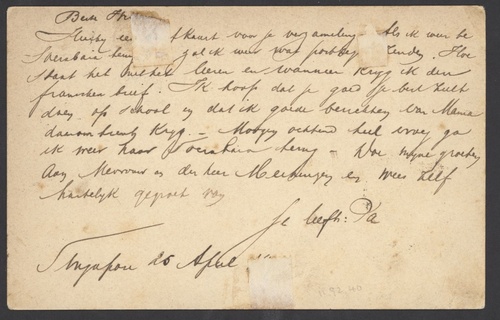 Beste
Hierbij een kaart voor je verzameling als ik weer te
Soerabaia terug zal ik weer wat postzegels zenden. Hoe
staat het met het leeren en wanneer krijg ik den
franschen brief. Ik hoop dat je goed je best zult
doen op school en dat ik goede berichten van Mama
daaromtrent krijg. — Morgen ochtend heel vroeg ga
ik weer naar Soerabaia terug — Doe mijne groeten
aan Mevrouw en den heer en wees zelf
hartelijk gegroet van
Je liefh: Pa
Singapore 26 April